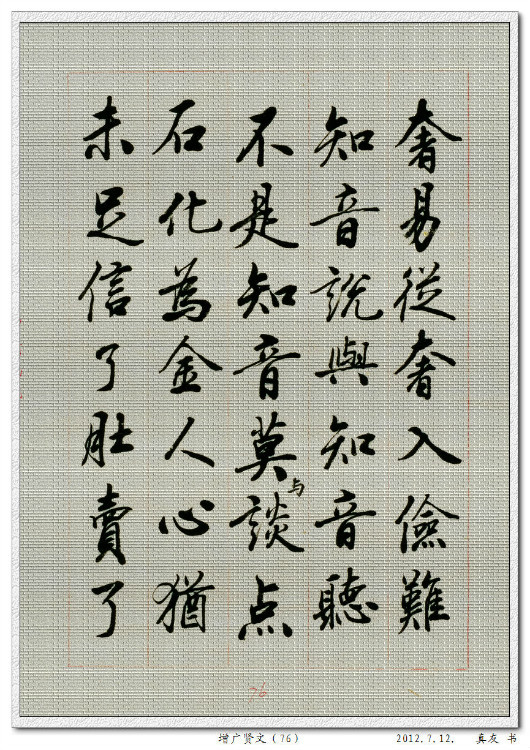 奢易從奢入儉難
知音說與知音聽
不是知音莫与談点
石化為金人心猶
未足信了肚賣了
76
增广贤文（76）
2012.7.12. 真友 书